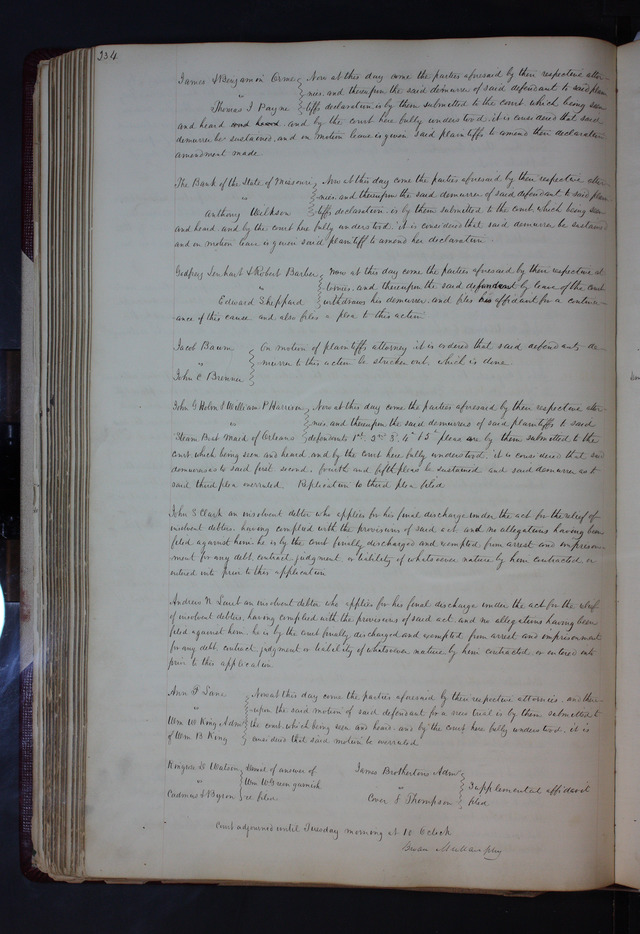 234
James & Benjamin Ormes } Now at this day come the parties aforesaid by their respective attor-
" } nies, and thereupon the said demurrer of said defendant to said plain
Thomas J Payne } tiffs declaration, is by them submitted to the court which being seen
and heard and heard, and by the court here fully understood, it is considered that said
demurrer be sustained, and on motion leave is given said plaintiffs to amend their declaration
amendment made
The Bank of the State of Missouri } Now at this day come the parties aforesaid by their respective attor-
" } nies and thereupon the said demurrer of said defendant to said plain
Anthony Wilkson } tiffs declaration, is by them submitted to the court which being seen
and heard and by the court here fully understood, it is considered that said demurrer be sustained
and on motion leave is given said plaintiff to amend her declaration.
Godfrey Lenhart & Robert Barber } Now at this day come the parties aforesaid by their respective at
" } tornies, and thereupon the said defendant by leave of the court
Edward Sheppard } withdraws his demurrer, and files his affidavit for a continu-
ance of this cause and also files a plea to this action
Jacob Baum } On motion of plaintiffs attorney it is ordered that said defendants de
" } murrer to this action be stricken out, which is done
John C Brenner }
John G & William P Harrison } Now at this day come the parties aforesaid by their respective attor-
" } nies and thereupon the said demurrers of said plaintiffs to said
Steam Boat Maid of Orleans } defendants 1st 2nd 3d 4th & 5th pleas are by them submitted to the
court which being seen and heard and by the court here fully understood, it is considered that said
demurrers to said first second, fourth and fifth pleas be sustained and said demurrer as to
said third plea overruled. Replication to third plea filed
John S Clark an insolvent debtor who applies for his final discharge under the act for the relief of
insolvent debtors, having complied with the provisions of said act and no allegations having been
filed against him, he is by the court finally discharged and exempted from arrest and imprison-
ment for any debt, contract, judgment or liability of whatsoever nature by him contracted or
entered into prior to this application
Andrew N an insolvent debtor who applies for his final discharge under the act for the relief
of insolvent debtors, having complied with the provisions of said act, and no allegations having been
filed against him, he is by the court finally discharged and exempted from arrest and imprisonment
for any debt, contract, judgment or liability of whatsoever nature by him contracted or entered into
prior to this application
Ann F Lane } Now at this day come the parties aforesaid by their respective attornies, and there-
" } upon the said motion of said defendant for a new trial is by them submitted to
Wm W King Admr } the court which being seen and heard, and by the court here fully understood, it is
of Wm B King } considered that said motion be overruled
Kongrove W Watson } Denial of answer of
" } Wm W Green garnish
Cadmus & Byson } ee filed
James Brothertons Admr }
" } Supplemental affidavit
Coner & Thompson } filed
Court adjourned until Tuesday morning at 10 Oclock
Bryan Mullanphy